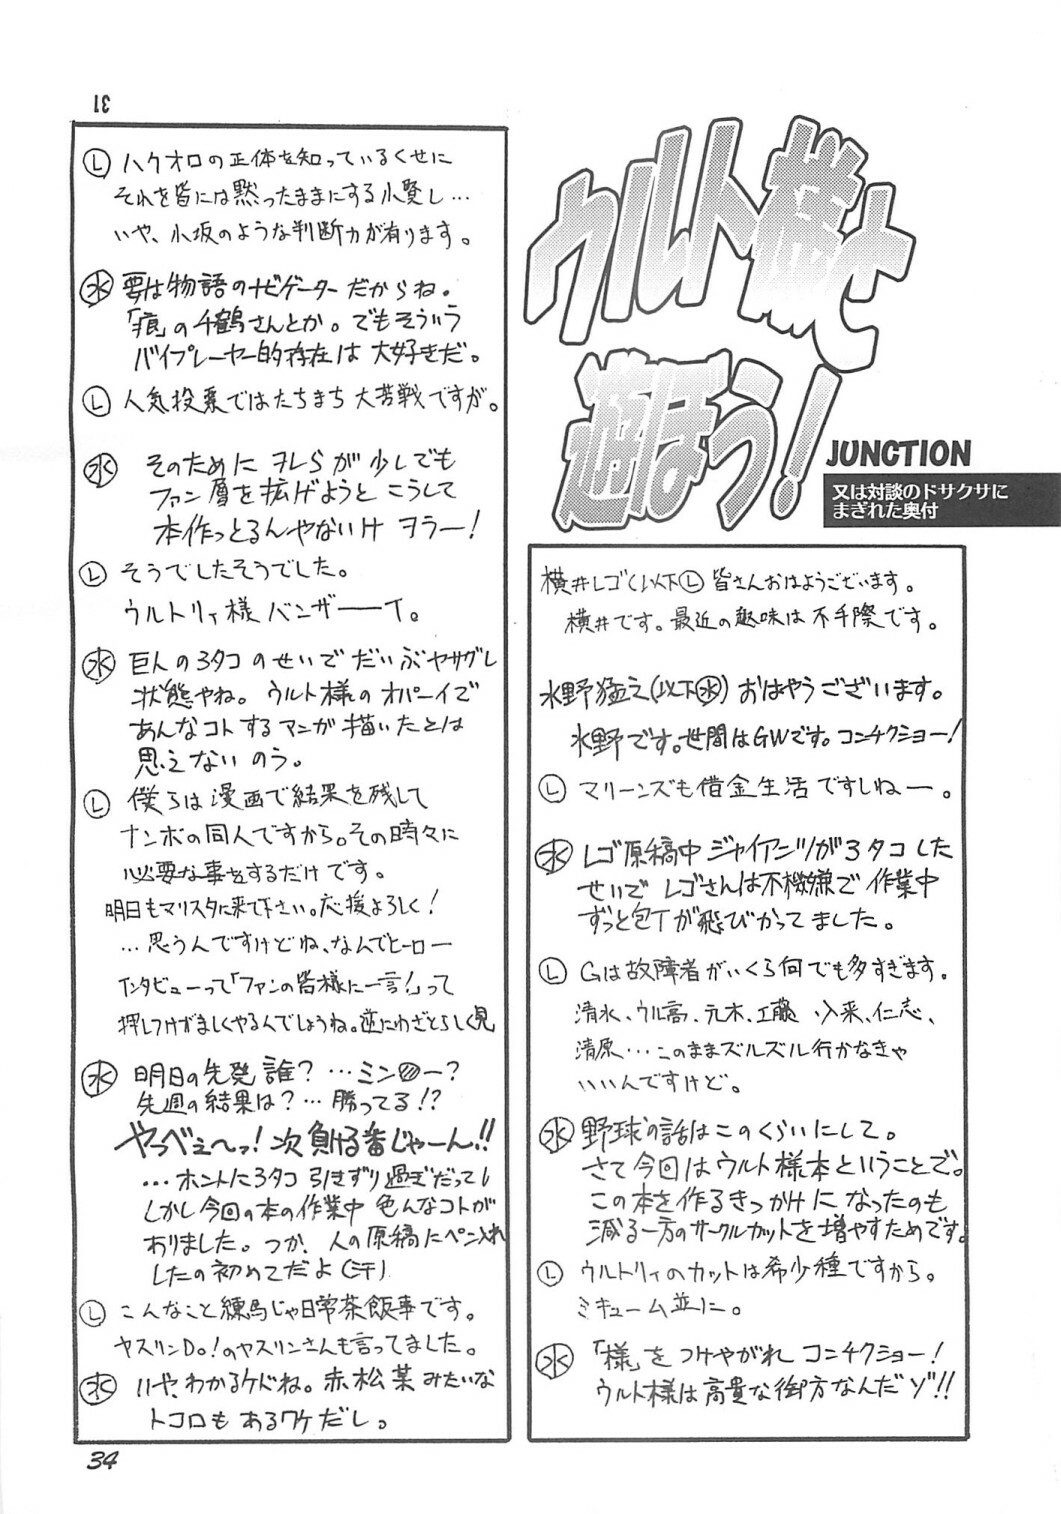 ウルト様と
遊ぼう!
JUNCTION
又は対談のドサクサに
まぎれた奥付
横井レゴ(以下Ⓛ 皆さんおはようございます。
横井です。最近の趣味は不手際です。
水野猛之(以下㊌) おはやうございます。
水野です。世間はGWです。コンチクショー!
Ⓛ マリーンズも借金生活ですしねー。
㊌ レゴ原稿中ジャイアンツが3タコした
せいでレゴさんは不機嫌で作業中
ずっと包丁が飛びかってました。
Ⓛ Gは故障者がいくら何でも多すぎます。
清水、ウル高、元木、工藤、入来、仁志、
清原…このままズルズル行かなきゃ
いいんですけど。
㊌ 野球の話はこのくらいにして。
さて今回はウルト様本ということで。
この本を作るきっかけになったのも
減る一方のサークルカットを増やすためです。
Ⓛ ウルトリィのカットは希少種ですから。
ミキューム並に。
㊌ 「様」をつけやがれコンチクショー!
ウルト様は高貴な御方なんだゾ!!
31
Ⓛ ハクオロの正体を知っているくせに
それを皆には黙ったままにする小賢し…
いや、小坂のような判断力が有ります。
㊌ 要は物語のナビゲーターだからね。
「痕」の千鶴さんとか。でもそういう
バイプレーヤー的存在は大好きだ。
Ⓛ 人気投票ではたちまち大苦戦ですが。
㊌ そのためにヲレらが少しでも
ファン層を拡げようとこうして
本作っとるんやないけヲラー!
Ⓛ そうでしたそうでした。
ウルトリィ様バンザーーイ。
㊌ 巨人の3タコのせいでだいぶヤサグレ
状態やね。ウルト様のオパーイで
あんなコトするマンガ描いたとは
思えないのう。
Ⓛ 僕らは漫画で結果を残して
ナンボの同人ですから。その時々に
必要な事をするだけです。
明日もマリスタに来て下さい。応援よろしく!
…思うんですけどね、なんでヒーロー
インタビューって「ファンの皆様に一言!」って
押しつけがましくやるんでしょうね。逆にわざとらしく見
㊌ 明日の先発誰?…ミン〇ー?
先週の結果は?…勝ってる!?
やっべぇ〜っ!次負ける番じゃーん!!
…ホントに3タコ引きずり過ぎだってし
しかし今回の本の作業中色んなコトが
ありました。つか、人の原稿にペン入れ
したの初めてだよ(汗)
Ⓛ こんなこと練馬じゃ日常茶飯事です。
ヤスリンDo!のヤスリンさんも言ってました。
㊌ いや、わかるケドね。赤松菜みたいな
トコロもあるワケだし。
34